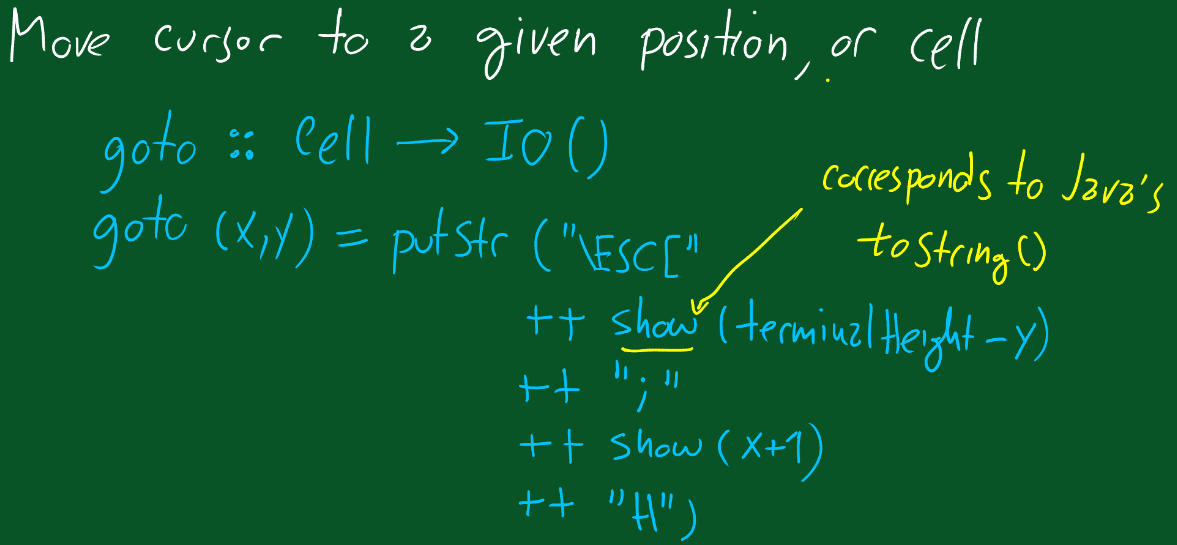 Move cursor to a given position, or cell
goto :: Cell → IO ()
goto (x,y) = putStr ("\ESC["
++ show (terminalHeight - y)
++ ";"
++ show (x+1)
++ "H")
corresponds to Java's
toString()